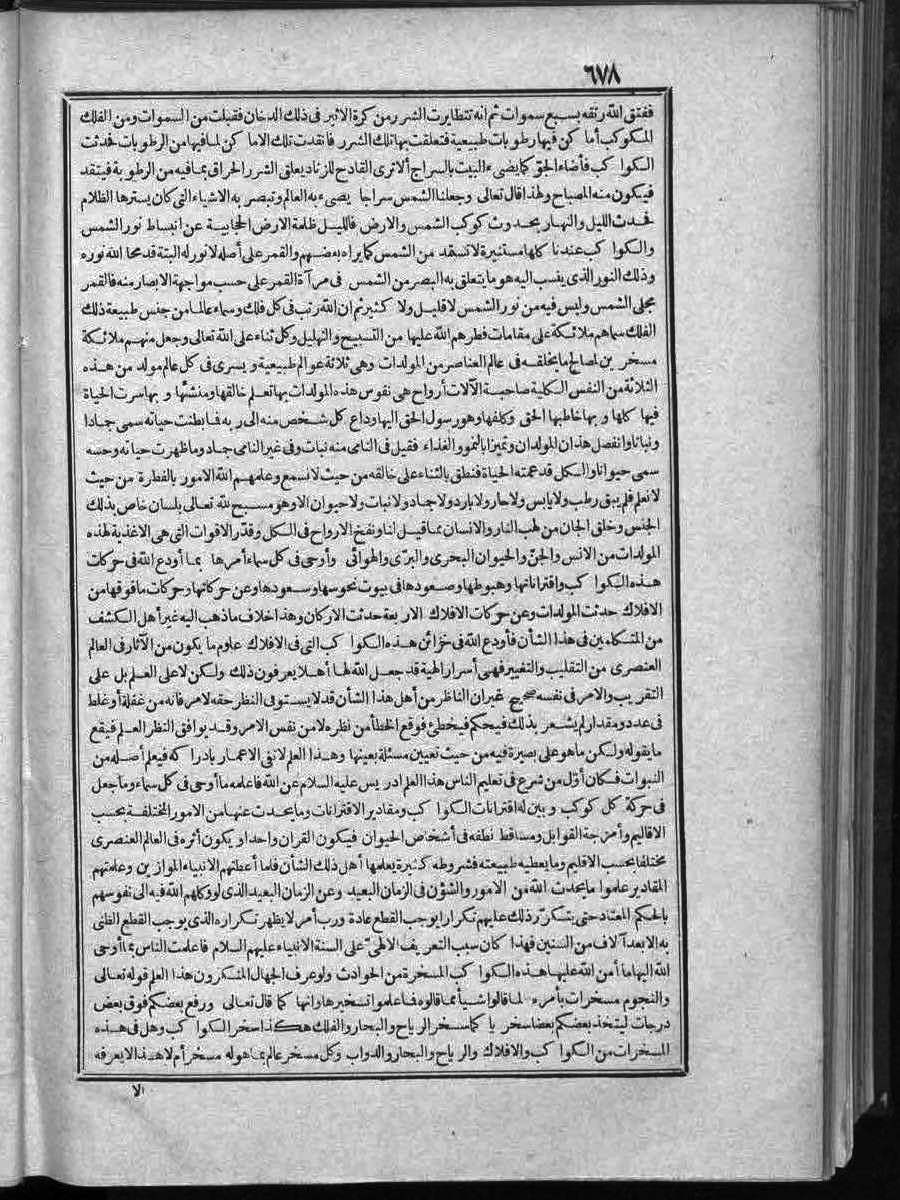 ٦٧٨
ففتق الله رتقه بسبع سموات ثم انه تتطايرت الشرر من كرة الاثير فى ذلك الدخان فقبلت من السموات ومن الفلك
المكوكب أما كن فيها رطوبات طبيعية فتعلقت بها تلك الشرر فانقدت تلك الاما كن لما فيها من الرطوبات فحدثت
الكوا كب فأضاء الجو كما يضىء البيت بالسراج ألا ترى القادح للزناد يعلق الشرر الحراق بما فيه من الرطوبة فيتقد
فيتكون منه المصباح ولهذا قال تعالى وجعلنا الشمس سراجا يضىء به العالم وتبصر به الاشياء التى كان يسترها الظلام
فحدث الليل والنهار بحدوث كوكب الشمس والارض فالليل ظلمة الارض الحجابية عن انبساط نور الشمس
والكوا كب عندنا كلها مستنيرة لا تستمد من الشمس كما يراه بعضهم والقمر على أصله لا نور له البتة قد محا الله نوره
وذلك النور الذى ينسب اليه هو ما يتعلق به البصر من الشمس فى مرآة القمر على حسب مواجهة الابصار منه فالقمر
مجلى الشمس وليس فيه من نور الشمس لا قليل ولا كثير ثم ان الله رتب فى كل فلك وسماء عالما من جنس طبيعة ذلك
الفلك سماهم ملائكة على مقامات فطرهم الله عليها من التسبيح والتهليل وكل ثناء على الله تعالى وجعل منهم ملائكة
مسخر ين لمصالح ما يخلقه فى عالم العناصر من المولدات وهى ثلاثة عوالم طبيعية ويسرى فى كل عالم مولد من هذه
الثلاثة من النفس الكلية صاحبة الآلات أرواح هى نفوس هذه المولدات بها تعلم خالقها ومنشئها و بها سرت الحياة
فيها كلها و بها خاطبها الحق وكلفها وهو رسول الحق اليها وداع كل شخص منه الى ربه فما بطنت حياته سمى جمادا
ونباتا وانفصل هذان المولدان وتميزا بالنمو والغذاء فقيل فى النامى منه نبات وفى غير النامى جماد وما ظهرت حياته وحسه
سمى حيوانا والكل قد عمته الحياة فنطق بالثناء على خالقه من حيث لا نسمع وعلمهم الله الامور بالفطرة من حيث
لا نعلم فلم يبق رطب ولا يابس ولا حار ولا بارد ولا جماد ولا نبات ولا حيوان الا وهو مسبح لله تعالى بلسان خاص بذلك
الجنس وخلق الجان من لهب النار والانسان مما قيل لنا ونفخ الارواح فى الكل وقدّر الاقوات التى هى الاغذية لهذه
المولدات من الانس والجن والحيوان البحرى والبرّى والهوائى وأوحى فى كل سماء أمرها بما أودع الله فى حركات
هذه الكوا كب واقتراناتها وهبوطها وصعودها فى بيوت نحوسها وسعودها وعن حركاتها وحركات ما فوقها من
الافلاك حدثت المولدات وعن حركات الافلاك الاربعة حدثت الاركان وهذا خلاف ما ذهب اليه غير أهل الكشف
من المتكلمين فى هذا الشأن فأودع الله فى خزائن هذه الكوا كب التى فى الافلاك علوم ما يكون من الآثار فى العالم
العنصرى من التقليب والتغيير فهى أسرار الهية قد جعل الله لها أهلا يعرفون ذلك ولكن لا على العلم بل على
التقر يب والامر فى نفسه صحيح غير ان الناظر من أهل هذا الشأن قد لا يستوفى النظر حقه لامر فاته من غفلة أو غلط
فى عدد ومقدار لم يشعر بذلك فيحكم فيخطئ فوقع الخطأ من نظره لا من نفس الامر وقد يوافق النظر العلم فيقع
ما يقوله ولكن ما هو على بصيرة فيه من حيث تعيين مسئلة بعينها وهذا العلم لا تفى الاعمار بادرا كه فيعلم أصله من
النبوات فكان أوّل من شرع فى تعليم الناس هذا العلم ادر يس عليه السلام عن الله فاعلمه ما أوحى فى كل سماء وما جعل
فى حركة كل كوكب و بين له اقترانات الكوا كب ومقادير الاقترانات وما يحدث عنها من الامور المختلفة بحسب
الاقاليم وأمزجة القوابل ومساقط نطفه فى أشخاص الحيوان فيكون القران واحدا ويكون أثره فى العالم العنصرى
مختلفا بحسب الاقليم وما يعطيه طبيعته فشروطه كثيرة يعلمها أهل ذلك الشأن فلما أعطتهم الانبياء الموازين وعلمتهم
المقادير علموا ما يحدث الله من الامور والشؤن فى الزمان البعيد وعن الزمان البعيد الذى لو وكلهم الله فيه الى نفوسهم
بالحكم المعتاد حتى يتكرّر ذلك عليهم تكرارا يوجب القطع عادة ورب أمر لا يظهر تكراره الذى يوجب القطع الظنى
به الا بعد آلاف من السنين فهذا كان سبب التعريف الالهىّ على السنة الانبياء عليهم السلام فاعلمت الناس بما أوحى
الله اليها مما أمن الله عليها هذه الكوا كب المسخرة من الحوادث ولو عرف الجهال المنكرون هذا العلم قوله تعالى
والنجوم مسخرات بأمره لما قالوا شيأ مما قالوه فاعلموا تسخيرها وانها كما قال تعالى ورفع بعضكم فوق بعض
درجات ليتخذ بعضكم بعضا سخر يا كما سخر الر ياح والبحار والفلك هكذا سخر الكوا كب وهل فى هذه
المسخرات من الكوا كب والافلاك والر ياح والبحار والدواب وكل مسخر عالم بما هو له مسخر أم لا هذا لا يعرفه
الا